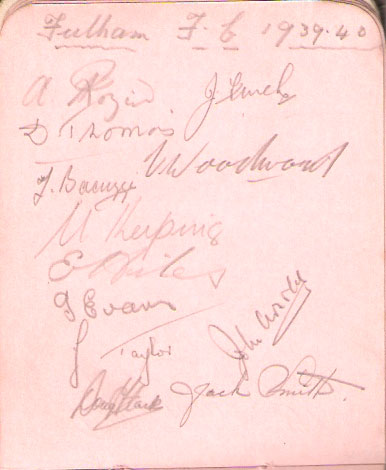 Fulham F.C 1939-40
A Rozier J. Finch
D Thomas
V Woodward
J. Bacuzzi
M Keeping
E Hiles
J Evans
J Taylor John Arnold
Jack Smith.